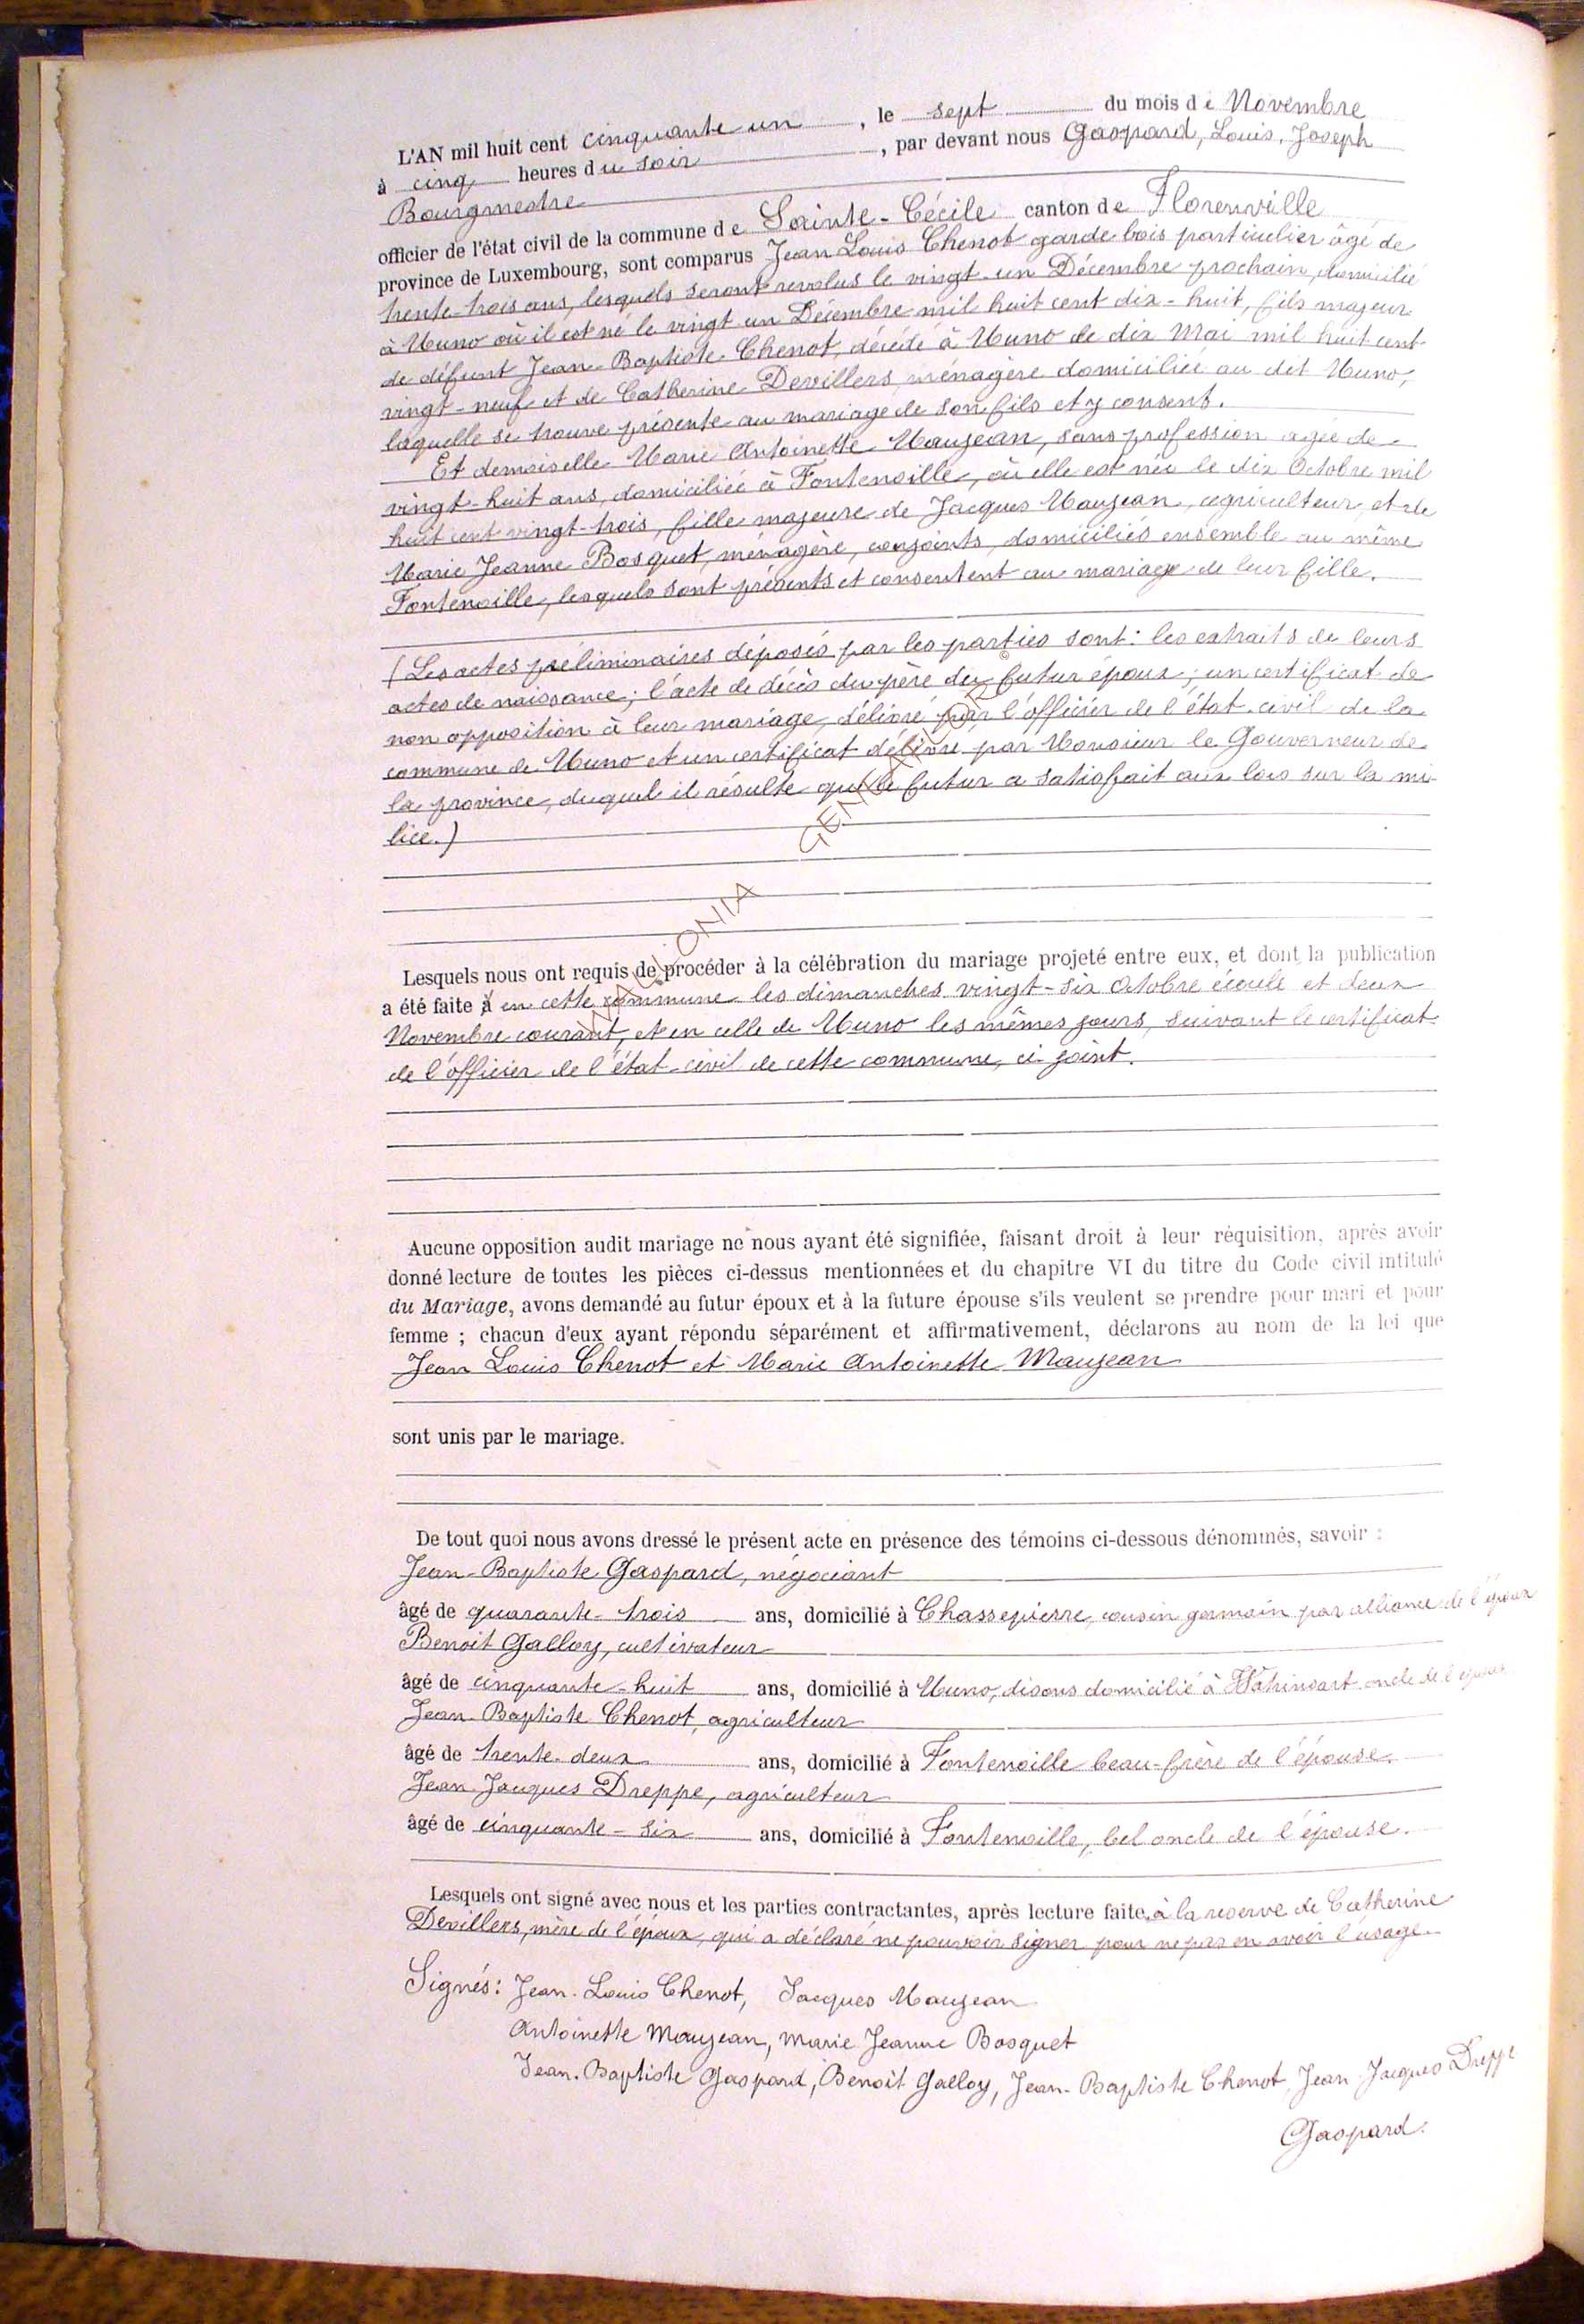 L'AN mil huit cent cinquante un, le sept du mois de Novembre
à cinq heures du soir, par devant nous Gaspard, Louis, Joseph
Bourgmestre
officier de l'état civil de la commune de Sainte-Cécile canton de Florenville
province de Luxembourg, sont comparus Jean Louis Chenot garde bois particulier âgé de
trente-trois ans, lesquels seront revolus le vingt-un Décembre prochain, domicilié
à Muno où il est né le vingt un Décembre mil huit cent dix-huit, fils majeur
de défunt Jean-Baptiste Chenot, décédé à Muno de dix Mai mil huit cent
vingt-neuf et de Catherine Devillers, ménagère domiciliée au dit Muno,
laquelle se trouve présente au mariage de son fils et y consent.
Et demoiselle Marie Antoinette Maujean, sans profession agée de
vingt-huit ans, domiciliée à Fontenoille, où elle est née le dix Octobre mil
huit cent vingt-trois, fille majeure de Jacques Maujean, agriculteur, et de
Marie Jeanne Bosquet, ménagère, conjoints, domiciliés ensemble au même
Fontenoille, lesquels sont présents et consentent au mariage de leur fille.
(Les actes préliminaires déposés par les parties sont: les extraits de leurs
actes de naissance; l'acte de décès du père du futur époux; un certificat de
non opposition à leur mariage, délivré par l'officier de l'état-civil de la
commune de Muno et un certificat délivré par Monsieur le Gouverneur de
la province, duquel il résulte que le futur a satisfait aux lois sur la mi-
lice.)
Lesquels nous ont requis de procéder à la célébration du mariage projeté entre eux, et dont la publication
a été faite en cette commune les dimanches vingt-six Octobre écoulé et deux
Novembre courant, et en celle de Muno les mêmes jours, suivant le certificat
de l'officier de l'état-civil de cette commune, ci-joint.
Aucune opposition audit mariage ne nous ayant été signifiée, faisant droit à leur réquisition, après avoir
donné lecture de toutes les pièces ci-dessus mentionnées et du chapitre VI du titre du Code civil intitulé
du Mariage, avons demandé au futur époux et à la future épouse s'ils veulent se prendre pour mari et pour
femme ; chacun d'eux ayant répondu séparément et affirmativement, déclarons au nom de la loi que
Jean Louis Chenot et Marie Antoinette Maujean
sont unis par le mariage.
De tout quoi nous avons dressé le présent acte en présence des témoins ci-dessous dénommés, savoir :
Jean-Baptiste Gaspard, négociant
âgé de quarante-trois ans, domicilié à Chassepierre, cousin germain par alliance de l'époux
Benoit Galloy, cultivateur
âgé de cinquante-huit ans, domicilié à Muno, disons domicilié à Wahinsart oncle de l'époux
Jean-Baptiste Chenot, agriculteur
âgé de trente-deux ans, domicilié à Fontenoille beau-frère de l'épouse.
Jean-Jacques Dreppe, agriculteur
âgé de cinquante-six ans, domicilié à Fontenoille, bel oncle de l'épouse.
Lesquels ont signé avec nous et les parties contractantes, après lecture faite, à la reserve de Catherine
Devillers, mère de l'époux, qui a déclaré ne pouvoir signer pour ne pas en avoir l'usage.
Signés: Jean-Louis Chenot, Jacques Maujean
Antoinette Maujean, Marie Jeanne Bosquet
Jean-Baptiste Gaspard, Benoît Galloy, Jean-Baptiste Chenot, Jean Jacques Dreppe
Gaspard.